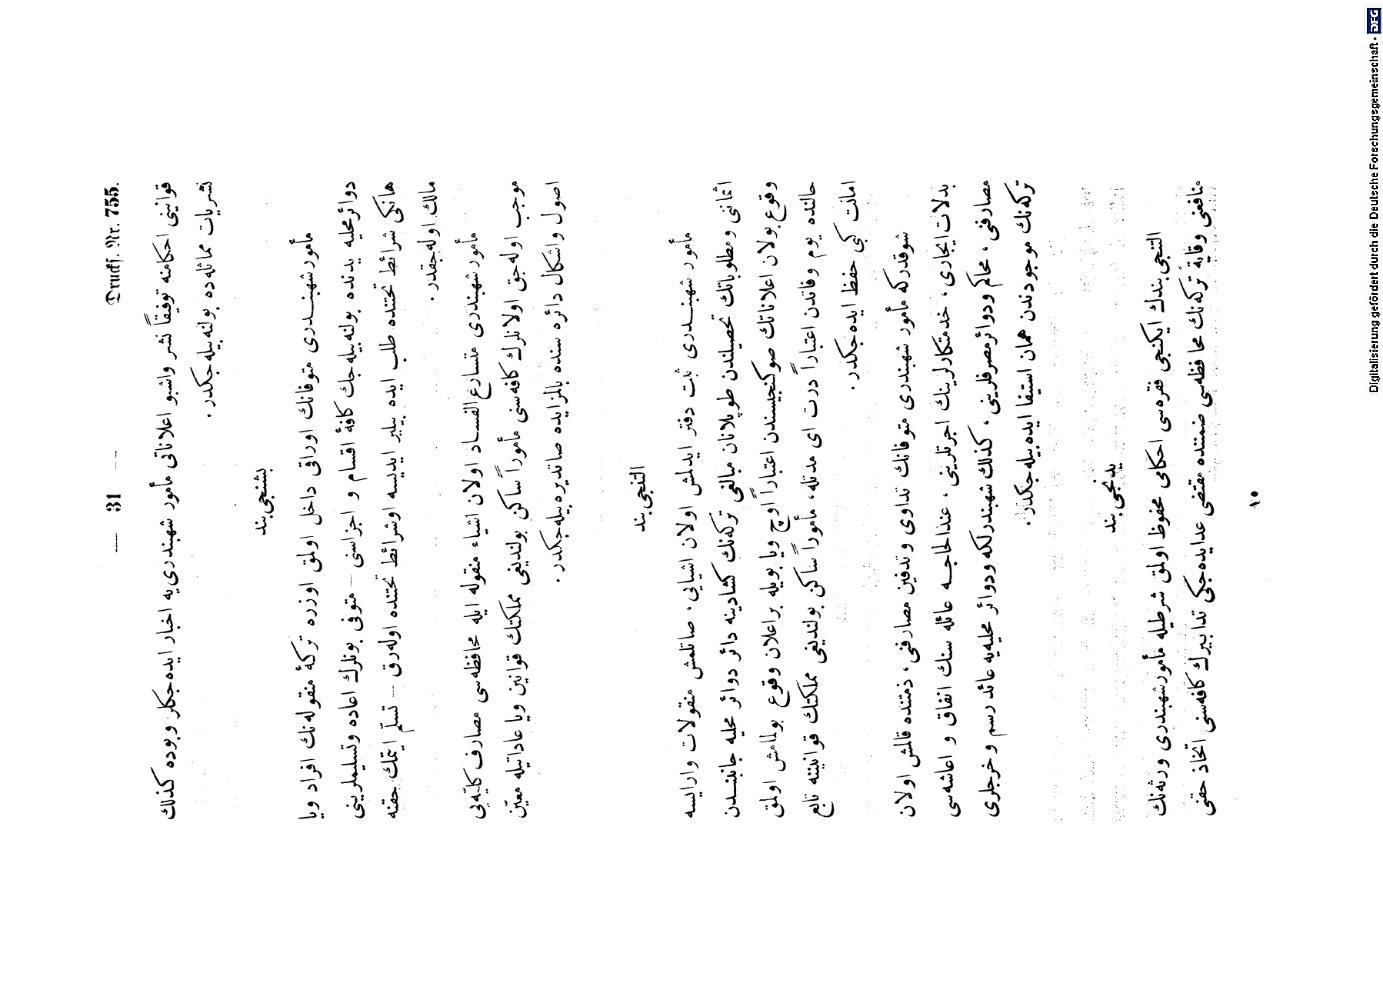 — 31 — Druckf. Nr. 755.
قوانینی احکامنه توفیقاً نشر واشبو اعلاناتی مأمور شهبندری یه اخبار ایده جکلر وبوده کذلك
نشریات مماثله ده بولنه بیله جکدر .
بشنجی بند
مأمور شهبندری متوفانك اوراقی داخل اولمق اوزره ترکهٔ منقوله نك افراد ویا
دوائر محلیه یدنده بولنه بیله جك کافهٔ اقسام و اجزاسنی — متوفی بونلرك اعاده وتسلیملرینی
هانکی شرائط تحتنده طلب ایده بیلیر ایدیسه اوشرائط تحتنده اوله رق — تسلّم ایتمك حقنه
مالك اوله جقدر .
مأمور شهبندری متسارع الفساد اولان اشیاء منقوله ایله محافظه سی مصارف کلیه یی
موجب اوله جق اولانلرك کافه سنی مأموراً ساکن بولندیغی مملکتك قوانین ویا عاداتیله معیّن
اصول واشکال دائره سنده بالمزایده صاتدیره بیله جکدر .
التنجی بند
مأمور شهبندری ثبت دفتر ایدلمش اولان اشیایی ، صاتلمش منقولات وارایسه
اثماننی و مطلوباتك تحصیلندن طوپلانان مبالغی ترکه نك کشادینه دائر دوائر محلیه جانبندن
وقوع بولان اعلاناتك صوکنجیسندن اعتباراً اوچ ویا بویله براعلان وقوع بولمامش اولمق
حالنده یوم وفاتدن اعتباراً درت ای مدتله ، مأموراً ساکن بولندیغی مملکتك قوانیننه تابع
امانت کبی حفظ ایده جکدر .
شوقدرکه مأمور شهبندری متوفانك تداوی وتدفین مصارفنی ، ذمتنده قالمش اولان
بدلات ایجاری ، خدمتکارلرینك اجرتلرینی ، عندالحاجه عائله سنك انفاق و اعاشه سی
مصارفنی ، محاکم ودوائر مصرفلرینی ، کذلك شهبندرلکه ودوائر محلیه یه عائد رسم وخرجلری
ترکه نك موجودندن همان استیفا ایده بیله جکدر .
یدنجی بند
التنجی بندك ایکنجی فقره سی احکامی محفوظ اولمق شرطیله مأمور شهبندری ورثه نك
منافعنی وقایةً ترکه نك محافظه سی ضمننده مقتضی عدایده جکی تدابیرك کافه سنی اتخاذ حقنی
١٥
Digitalisierung gefördert durch die Deutsche Forschungsgemeinschaft - DFG